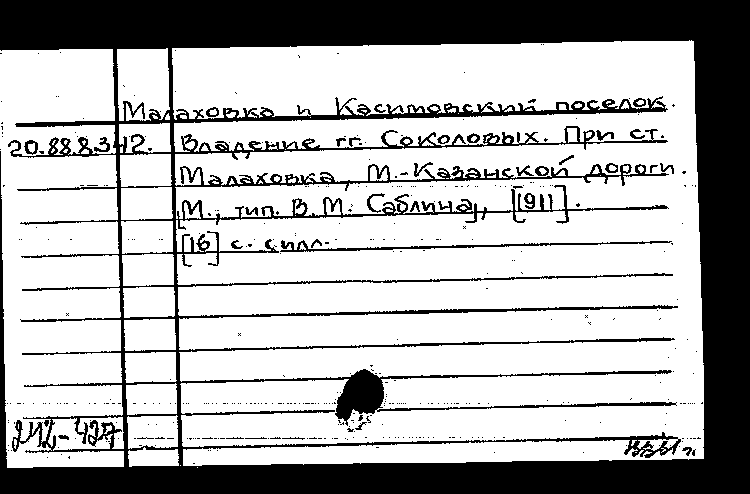 Малаховка и Касимовский поселок.
20.88.8.342. Владение гг. Соколовых. При ст.
Малаховка, М.-Казанской дороги.
[М., тип. В.М. Саблина], [1911].
[16] с. с илл.
212-427